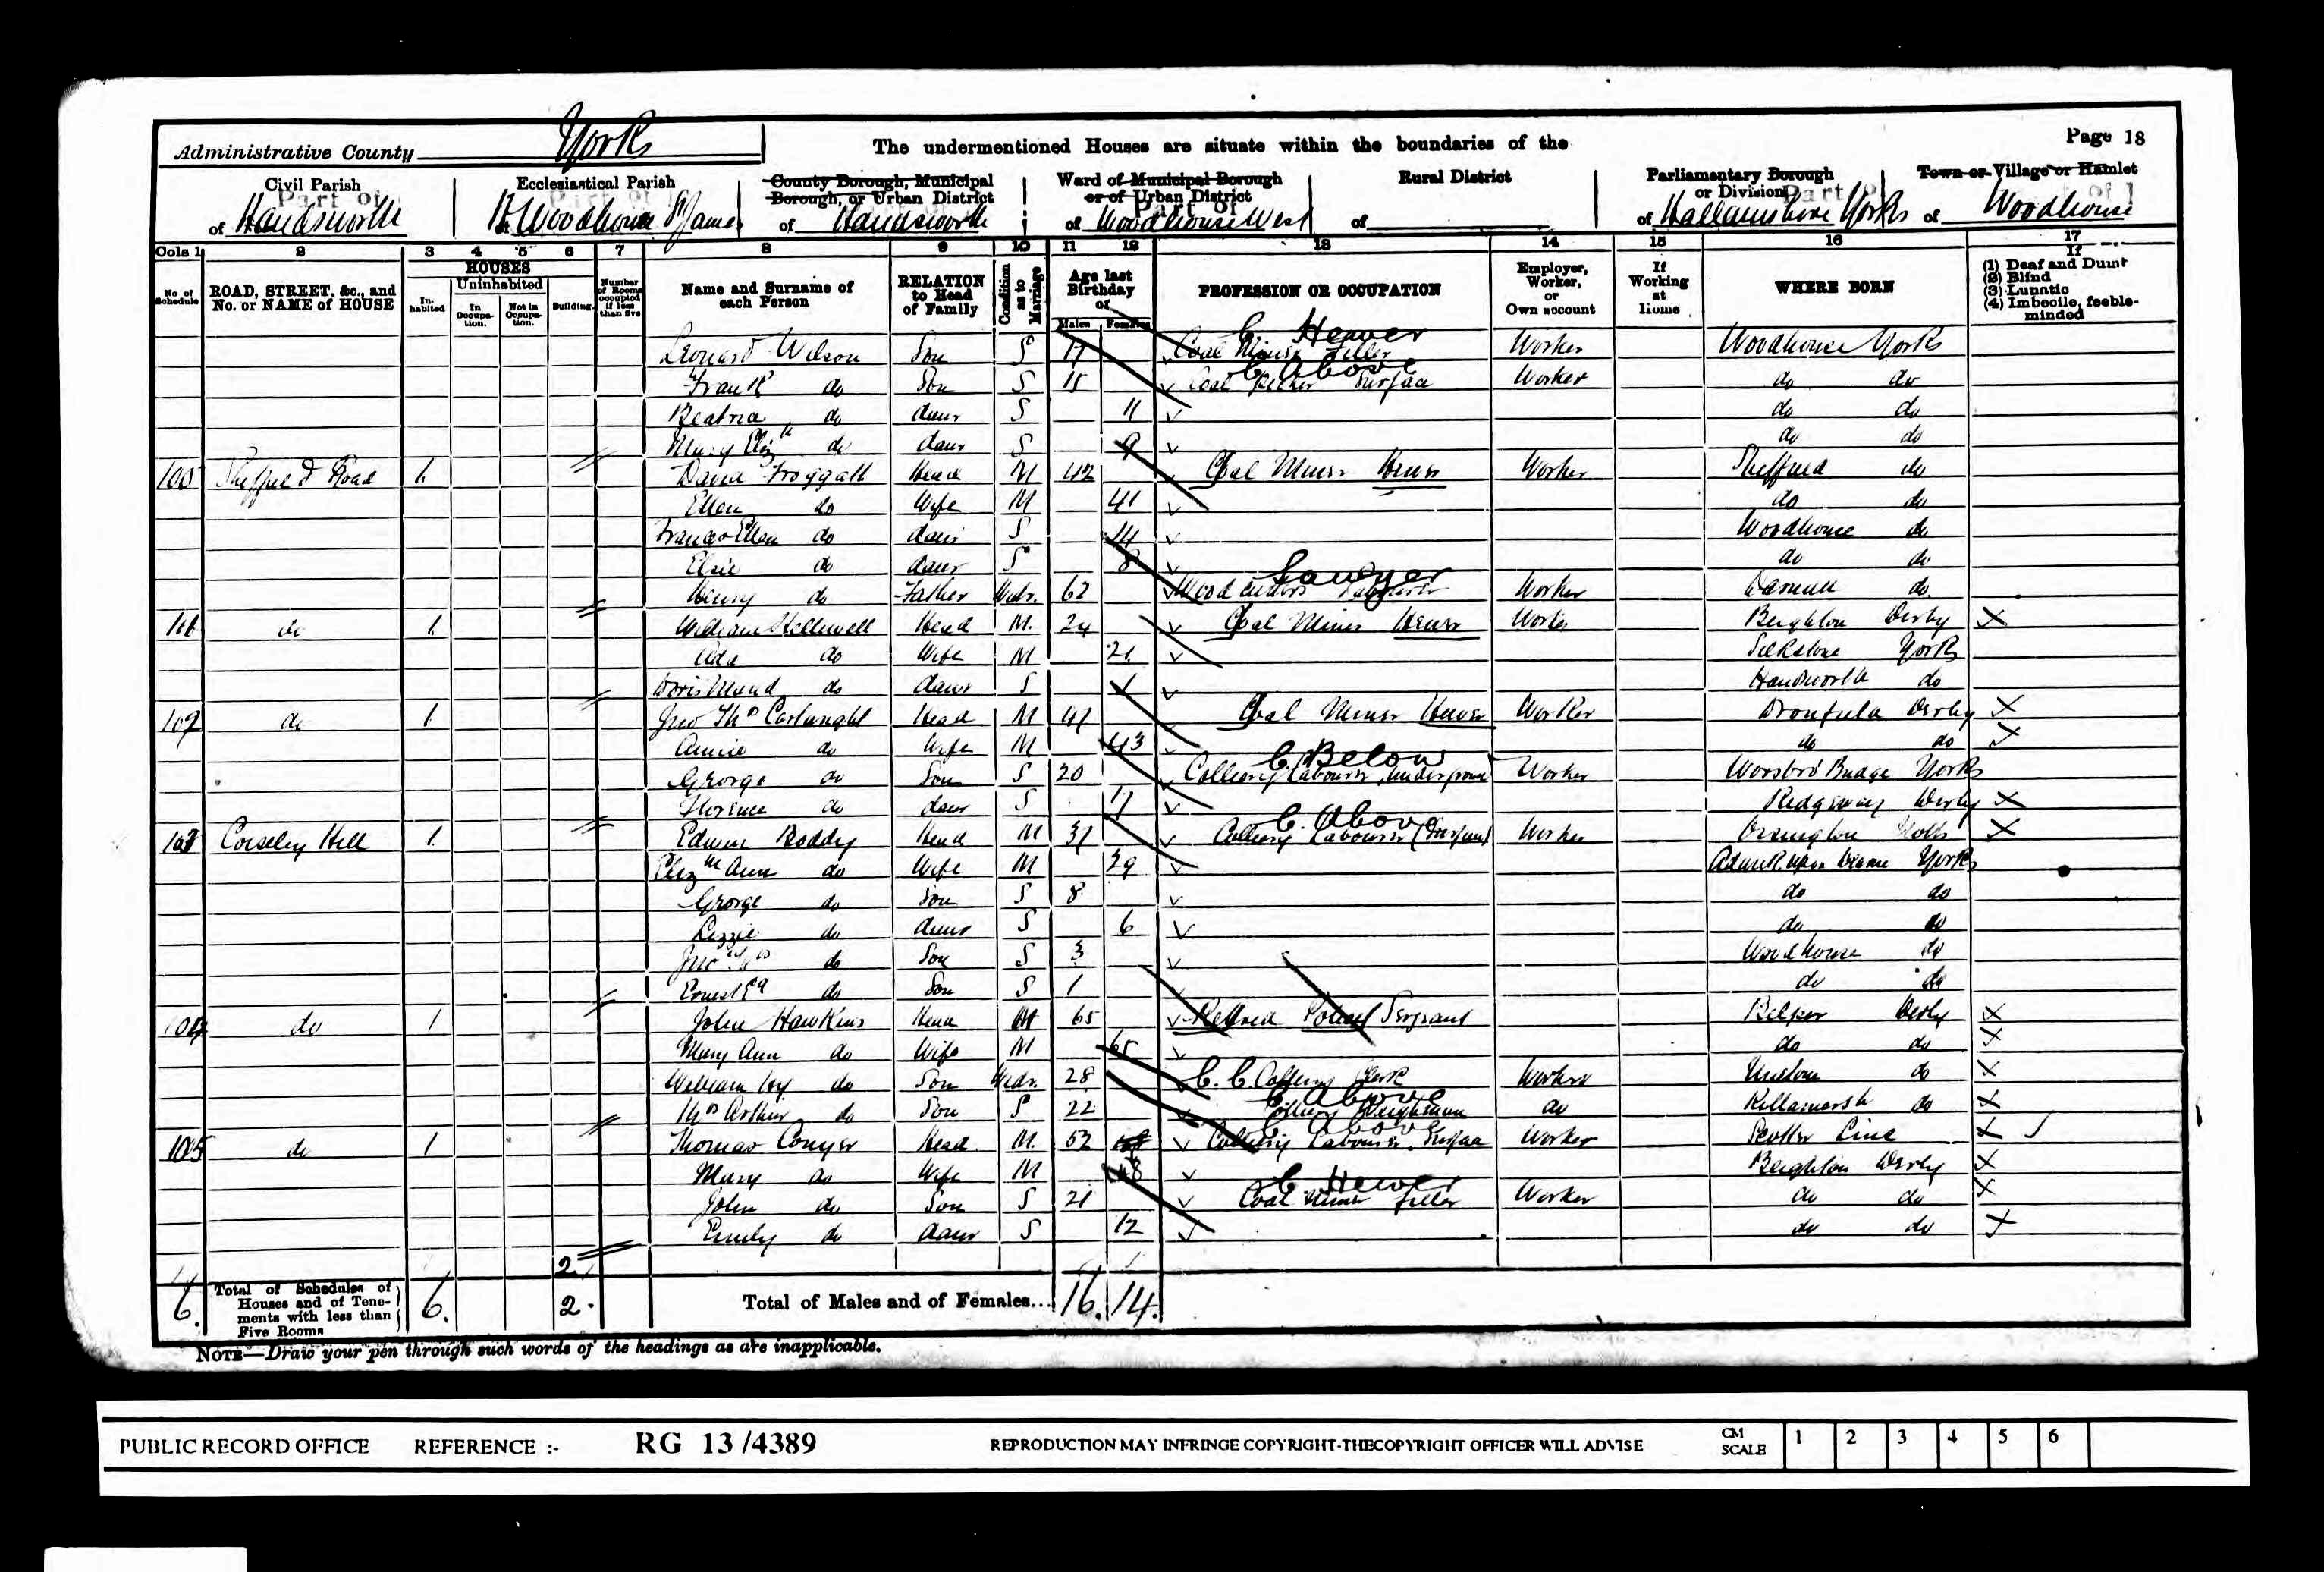 Page 18
Administrative County York
The undermentioned Houses are situate within the boundaries of the
Civil Parish
Part of
of Handsworth
Ecclesiastical Parish
Part of
Woodhouse St James
County Borough, Municipal Borough, or Urban District
of Handsworth
Ward of Municipal Borough or of Urban District
Part of
of Woodhouse West
Rural District
of
Parliamentary Borough or Division
Part of
of Hallamshire Yorks
Town or Village or Hamlet
of Woodhouse
Cols 1 2 3 4 5 6 7 8 9 10 11 12 13 14 15 16 17
No of Schedule
ROAD, STREET, &c., and No. or NAME of HOUSE
HOUSES
Inhabited
Uninhabited
In Occupation.
Not in Occupation.
Building.
Number of Rooms occupied if less than five
Name and Surname of each Person
RELATION to Head of Family
Condition as to Marriage
Age last Birthday of
Males Females
PROFESSION OR OCCUPATION
Employer, Worker, or Own account
If Working at Home
WHERE BORN
If
(1) Deaf and Dumb
(2) Blind
(3) Lunatic
(4) Imbecile, feeble-minded
C Hewer
Leonard Wilson Son S 17 Coal Miner Filler Worker Woodhouse York
C Above
Frank do Son S 15 Coal Picker Surface Worker do do
Beatrice do daur S 11 do do
Mary Elizth do daur S 9 do do
Sheffield Road 1 David Froggatt Head M 42 Coal Miner Hewer Worker Sheffield do
Ellen do Wife M 41 do do
Frances Ellen do daur S 14 Woodhouse do
Elsie do daur S 8 do do
Sawyer
Henry do Father Widr. 62 Wood Labourer Worker Darnall do
do 1 William Stillwell Head M. 24 Coal Miner Hewer Worker Beighton Derby X
Ada do Wife M 21 Silkstone York
Doris Maud do daur S 1 Handsworth do
102 do 1 Jno Thos Cartwright Head M 47 Coal Miner Hewer Worker Dronfield Derby X
Annie do Wife M 43 do do X
C Below
George do Son S 20 Colliery Labourer, Underground Worker Worsbro Bridge Yorks
Florence do daur S 17 Ridgeway Derby X
C. Above
103 1 Edwin Boddy Head M 37 Colliery Labourer (Surface) Worker Notts X
Elizth Ann do Wife M 29 Adwick upon Dearne Yorks
George do Son S 8 do do
Lizzie do daur S 6 do do
Jno Thos do Son S 3 Woodhouse do
Ernest Ed do Son S 1 do do
104 do 1 John Hawkins Head M 65 Retired Police Sergeant Belper Derby X
Mary Ann do Wife M 65 do do X
William Hy do Son Widr. 28 C. C. Colliery Clerk Worker Unstone do X
C Above
Thos Arthur do Son S 22 Colliery Weighman do Killamarsh do X
C Above
105 do 1 Thomas Conyer Head M. 52 Colliery Labourer, Surface Worker Scotter Linc X
Mary do Wife M 48 Beighton Derby X
C Hewer
John do Son S 21 Coal Miner Filler Worker do do X
Emily do daur S 12 do do X
2
6. Total of Schedules of Houses and of Tenements with less than Five Rooms 6. 2. Total of Males and of Females... 16. 14.
NOTE—Draw your pen through such words of the headings as are inapplicable.
PUBLIC RECORD OFFICE REFERENCE :- RG 13 /4389 REPRODUCTION MAY INFRINGE COPYRIGHT-THECOPYRIGHT OFFICER WILL ADVISE CM SCALE 1 2 3 4 5 6